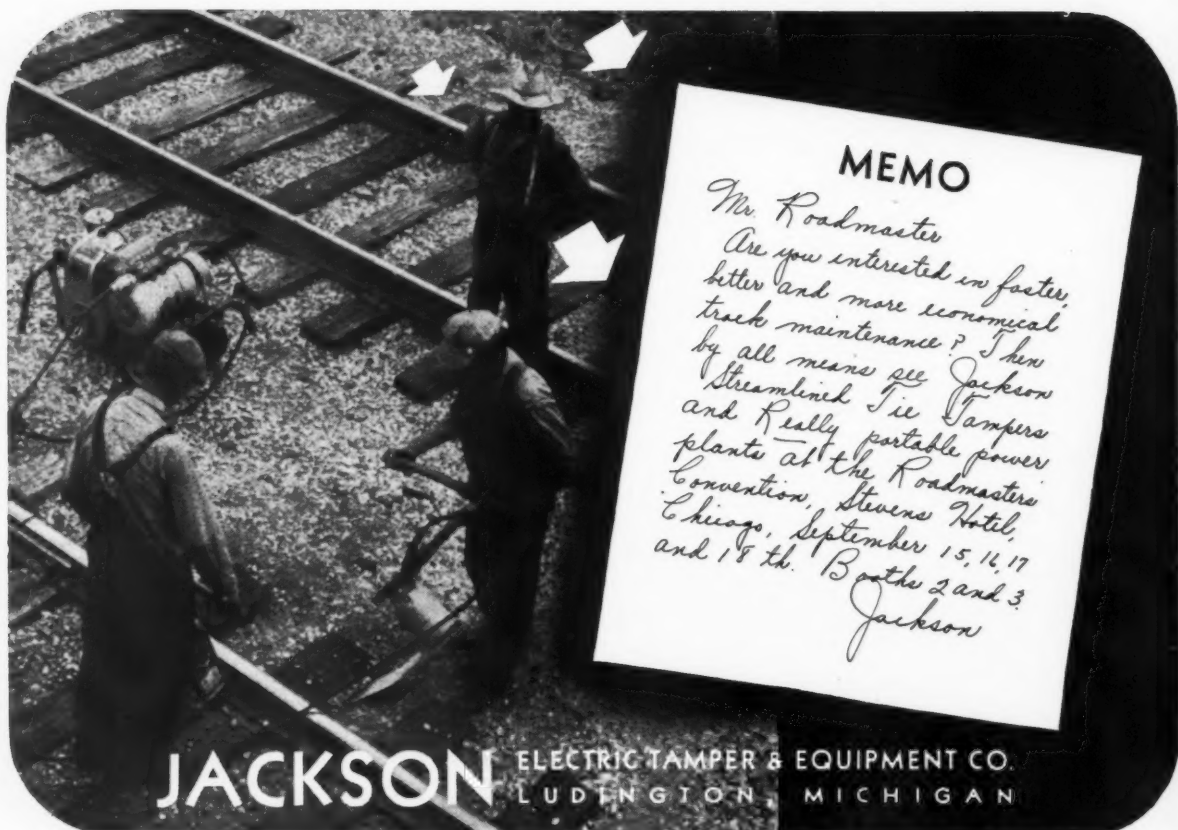 MEMO
Mr. Roadmaster
Are you interested in faster,
better and more economical
track maintenance? Then
by all means see Jackson
Streamlined Tie Tampers
and Really portable power
plants at the Roadmasters
Convention, Stevens Hotel,
Chicago, September 15, 16, 17
and 18th. Booths 2 and 3.
Jackson
JACKSON ELECTRIC TAMPER & EQUIPMENT CO.
LUDINGTON, MICHIGAN